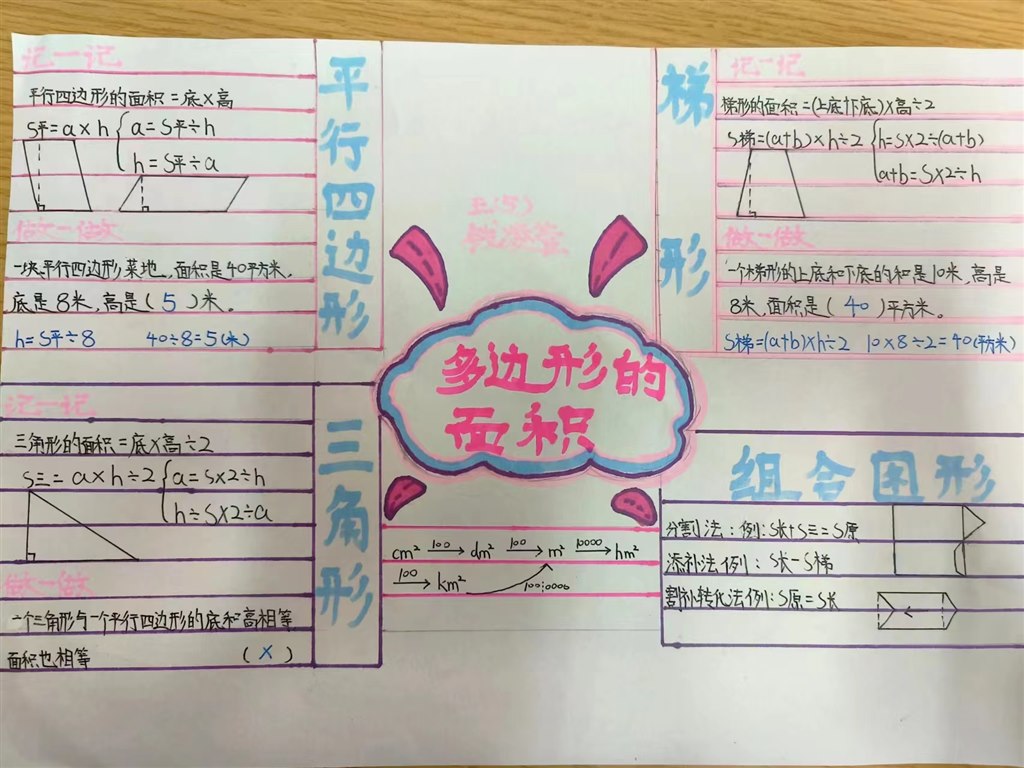 记一记
平行四边形的面积=底×高
S平=a×h
a=S平÷h
h=S平÷a
做一做
一块平行四边形菜地,面积是40平方米,
底是8米,高是(5)米。
h=S平÷8 40÷8=5(米)
平行四边形
梯形
记一记
梯形的面积=(上底+下底)×高÷2
S梯=(a+b)×h÷2
h=S×2÷(a+b)
a+b=S×2÷h
做一做
一个梯形的上底和下底的和是10米,高是
8米,面积是(40)平方米。
S梯=(a+b)×h÷2 10×8÷2=40(平方米)
五(5)
多边形的
面积
记一记
三角形的面积=底×高÷2
S三=a×h÷2
a=S×2÷h
h=S×2÷a
做一做
一个三角形与一个平行四边形的底和高相等
面积也相等 (×)
三角形
cm² 100→ dm² 100→ m² 10000→ hm²
100→ km² 1000000
组合图形
分割法:例:S长+S三=S原
添补法例:S长-S梯
割补转化法例:S原=S长